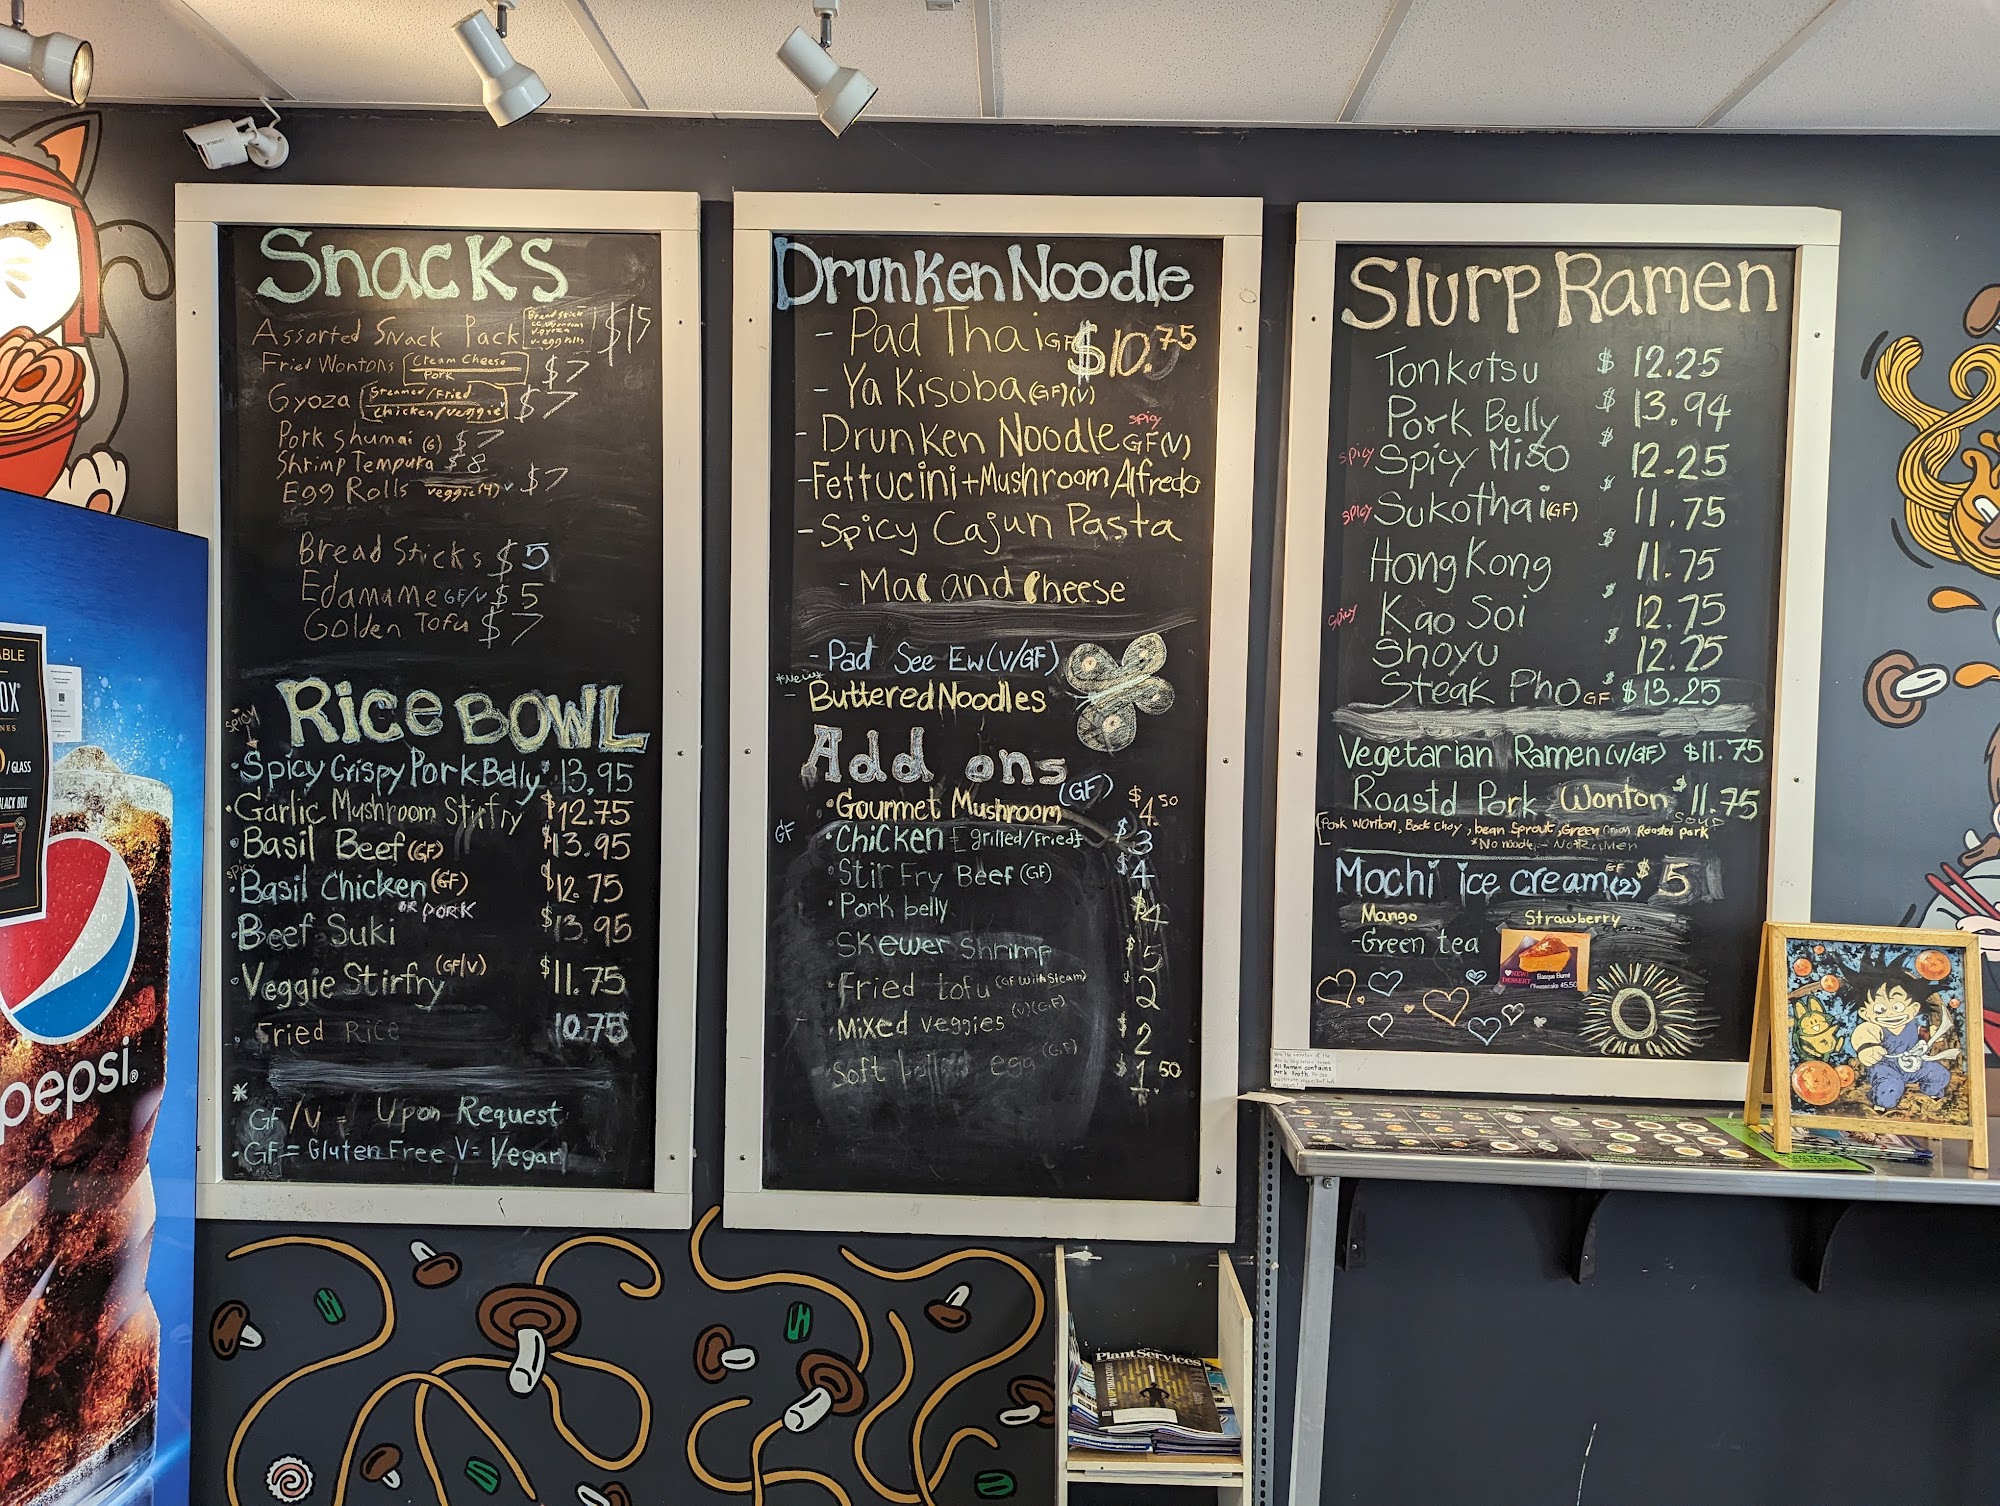 Snacks
Assorted Snack Pack
Bread Stick
v.gyoza
v.eggrolls
$15
Fried Wontons Cream Cheese $7
Pork
Gyoza Steamed/Fried $7
Chicken/Veggie
Pork Shumai (6) $7
Shrimp Tempura $8
Egg Rolls veggie(4) v $7
Bread Sticks $5
Edamame GF/V $5
Golden Tofu $7
Rice BOWL
SPICY
Spicy Crispy Pork Belly 13.95
Garlic Mushroom Stirfry $12.75
Basil Beef (GF) $13.95
spicy
Basil Chicken (GF) $12.75
OR PORK
Beef Suki $13.95
Veggie Stirfry (GF/V) $11.75
Fried Rice 10.75
*
GF/V = Upon Request
GF = Gluten Free, V = Vegan
Drunken Noodle
- Pad Thai GF $10.75
- Ya Kisoba (GF)(V)
spicy
- Drunken Noodle GF(V)
- Fettucini + Mushroom Alfredo
- Spicy Cajun Pasta
- Mac and Cheese
- Pad See Ew (V/GF)
*New*
- Buttered Noodles
Add ons
Gourmet Mushroom (GF) $4.50
GF Chicken [grilled/Fried] $3
Stir Fry Beef (GF) $4
Pork belly $4
Skewer Shrimp $5
Fried tofu (GF with Steam) $2
Mixed veggies (V)(GF) $2
Soft boiled egg (GF) $1.50
Slurp Ramen
Tonkotsu $12.25
Pork Belly $13.94
spicy Spicy Miso $12.25
spicy Sukothai (GF) $11.75
Hong Kong $11.75
spicy Kao Soi $12.75
Shoyu $12.25
Steak Pho GF $13.25
Vegetarian Ramen (V/GF) $11.75
Roastd Pork Wonton $11.75
SOUP
Pork wonton, Bok Choy, bean sprout, Green onion Roasted pork
*No noodle - Not Ramen
Mochi ice cream (2) GF $5
Mango Strawberry
- Green tea
NEW!
DESSERT
Basque Burnt
Cheesecake $5.50
All Ramen contains
pork broth.
pepsi
ABLE
OX
NES
/GLASS
BLACK BOX
Plant Services